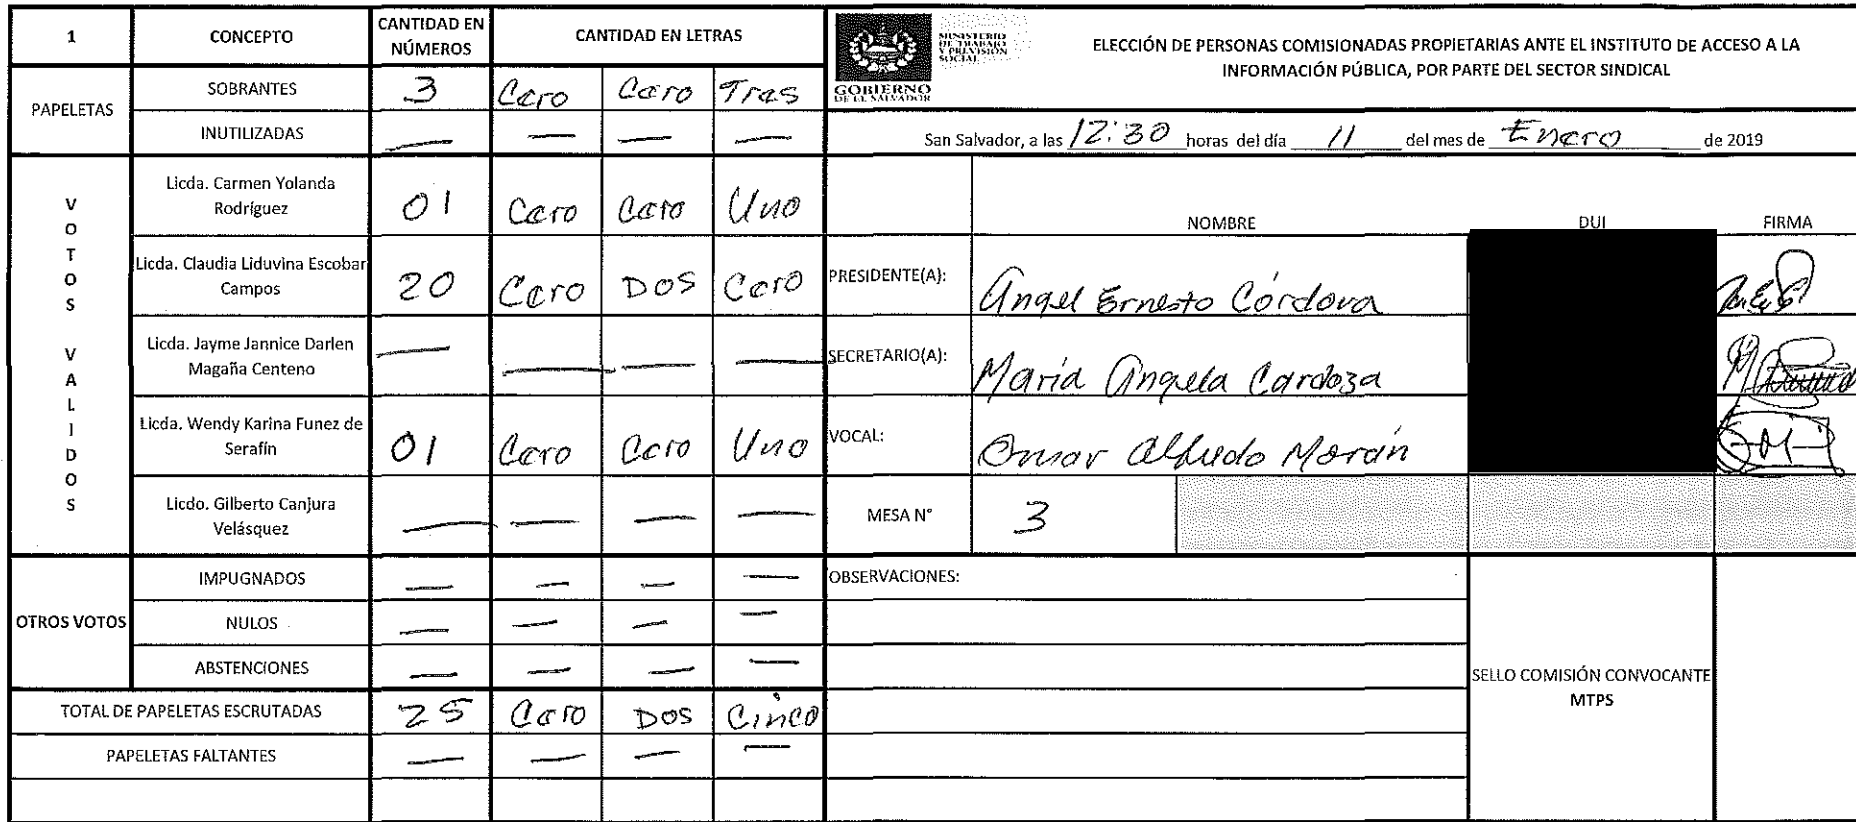 1 CONCEPTO CANTIDAD EN NÚMEROS CANTIDAD EN LETRAS
PAPELETAS
SOBRANTES 3 Cero Cero Tres
INUTILIZADAS — — — —
VOTOS VALIDOS
Licda. Carmen Yolanda Rodríguez 01 Cero Cero Uno
Licda. Claudia Liduvina Escobar Campos 20 Cero DOS Cero
Licda. Jayme Jannice Darlen Magaña Centeno — — — —
Licda. Wendy Karina Funez de Serafín 01 Cero Cero Uno
Licdo. Gilberto Canjura Velásquez — — — —
OTROS VOTOS
IMPUGNADOS — — — —
NULOS — — — —
ABSTENCIONES — — — —
TOTAL DE PAPELETAS ESCRUTADAS 25 Cero DOS Cinco
PAPELETAS FALTANTES — — — —
GOBIERNO
DE EL SALVADOR
MINISTERIO
DE TRABAJO
Y PREVISIÓN
SOCIAL
ELECCIÓN DE PERSONAS COMISIONADAS PROPIETARIAS ANTE EL INSTITUTO DE ACCESO A LA
INFORMACIÓN PÚBLICA, POR PARTE DEL SECTOR SINDICAL
San Salvador, a las 12:30 horas del día 11 del mes de Enero de 2019
NOMBRE DUI FIRMA
PRESIDENTE(A): Angel Ernesto Córdova
SECRETARIO(A): María Angela Cardoza
VOCAL: Omar Alfredo Morán
MESA N° 3
OBSERVACIONES:
SELLO COMISIÓN CONVOCANTE
MTPS